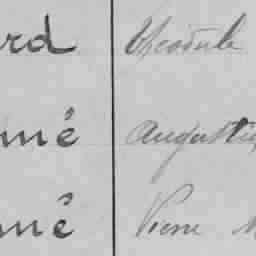 rd Théodule
mé Augustin
mé Pierre M